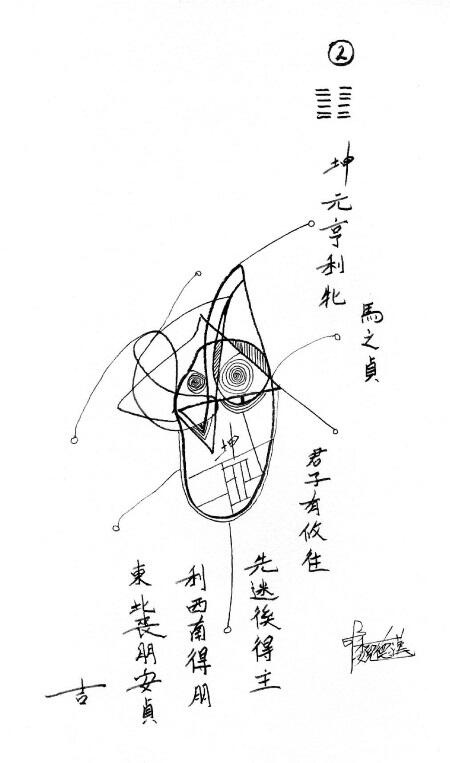 2
坤元亨利牝
馬之貞
君子有攸往
先迷後得主
利西南得朋
東北喪朋安貞
吉
坤